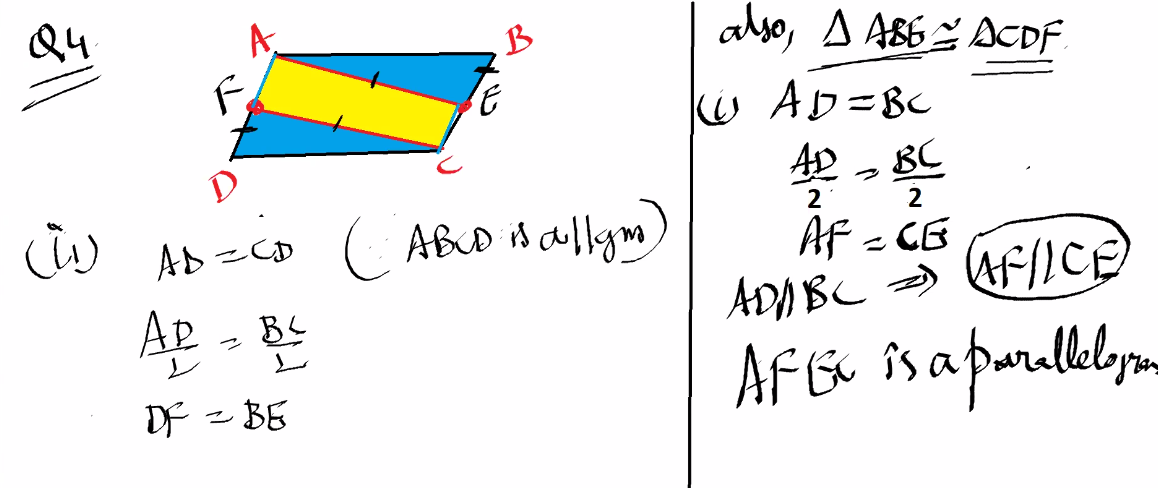 Q4
A
B
F
E
D
C
(ii) AD = CD (∵ ABCD is a ||gm)
AD/2 = BC/2
DF = BE
also, Δ ABE ≅ ΔCDF
(i) AD = BC
AD/2 = BC/2
AF = CE
AD||BC ⇒ AF||CE
AFEC is a parallelogram